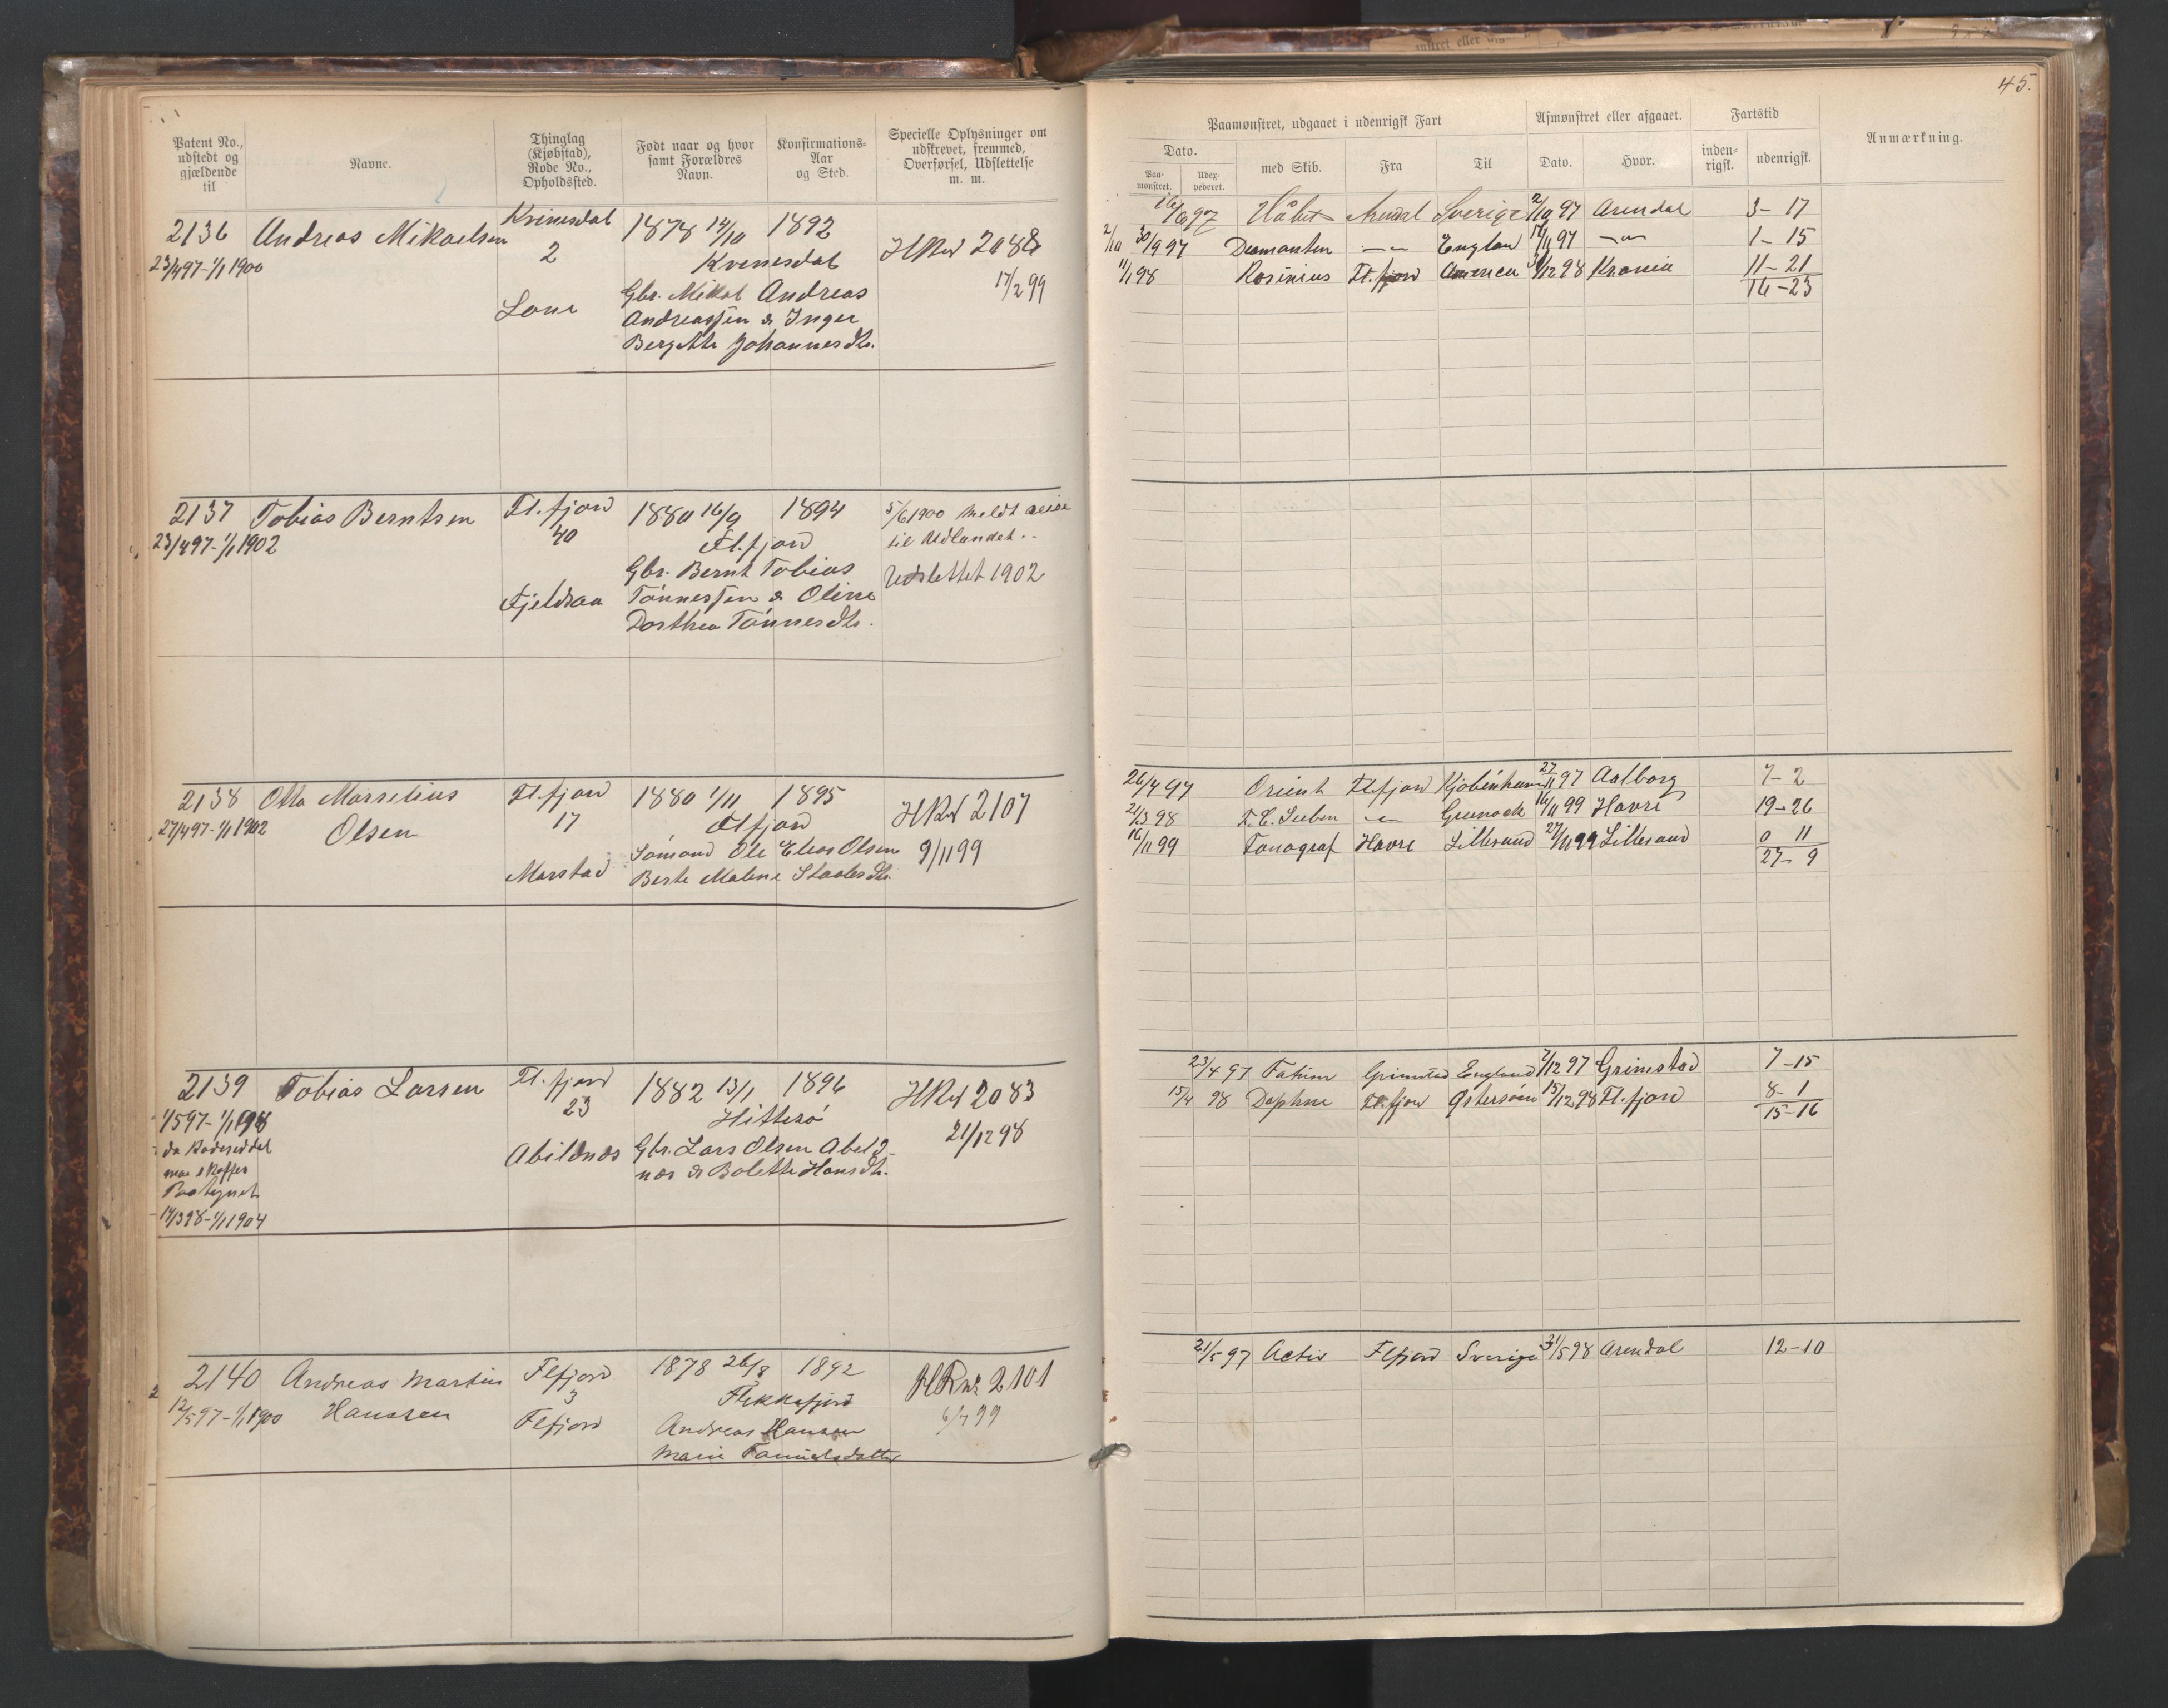 45.
Patent No., udstedt og gjældende til
Navne.
Thinglag (Kjøbstad), Rode No., Opholdssted.
Født naar og hvor samt Forældres Navn.
Konfirmations-Aar og Sted.
Specielle Oplysninger om udskrevet, fremmed, Overførsel, Udslettelse m. m.
Paamønstret, udgaaet i udenrigsk Fart
Afmønstret eller afgaaet.
Fartstid
Anmærkning.
Dato.
Paa-mønstret.
Udex-pederet.
med Skib.
Fra
Til
Dato.
Hvor.
inden-rigsk.
udenrigsk.
2136 Andreas Mikaelsen Kvinesdal 1878 14/10 1892
23/4 97-1/1 1900 2 Kvinesdal HRul 2088
Lone Gbr. Mikal Andreas 17/2 99
Andreassen & Inger
Bergethe Johannesdtr.
16/6 97 Håbet Arendal Sverige 2/10 97 Arendal 3-17
2/10 30/9 97 Demanten —"— England 17/11 97 —"— 1-15
11/1 98 Rosinius Fl.fjord America 31/12 98 Krania 11-21
16-23
2137 Tobias Berntsen Fl.fjord 1880 16/9 1894 5/6 1900 meldt reise
23/4 97-1/1 1902 40 Fl.fjord til Udlandet.
Gbr. Bernt Tobias Udslettet 1902
Fjeldsaa Tønnessen & Oline
Dorthea Tønnesdtr.
2138 Otto Marselius Fl.fjord 1880 1/11 1895 HRul 2107
27/4 97-1/1 1902 Olsen 17 Flfjord
Sømand Ole Elias Olsen 9/11 99
Marstad Berte Malene Staalesdtr.
26/4 97 Orient Fl.fjord Kjøbenhavn 27/11 97 Aalborg 7-2
21/3 98 F.C. Sieben —"— Greenock 16/11 99 Havre 19-26
16/11 99 Fonograf Havre Lillesand 27/11 99 Lillesand 0 11
27-9
2139 Tobias Larsen Fl.fjord 1882 13/1 1896 HRul 2083
1/5 97-1/1 98 23 Hitterø
da Rodeseddel 21/12 98
maa skaffes Abildnæs Gbr. Lars Olsen Abeld-
Paategnet næs & Bolette Hansdtr.
14/3 98-1/1 1904
23/4 97 Fatum Grimstad England 7/12 97 Grimstad 7-15
15/4 98 Daphne Fl.fjord Østersøen 15/12 98 Fl.fjord 8-1
15-16
2140 Andreas Martin Flfjord 1878 26/8 1892 HRul 2101
12/5 97-1/1 1900 Hanssen 3 Flekkefjord 6/7 99
Flfjord Andreas Hansen
Marie Samuelsdatter
21/5 97 Activ Flfjord Sverige 31/5 98 Arendal 12-10